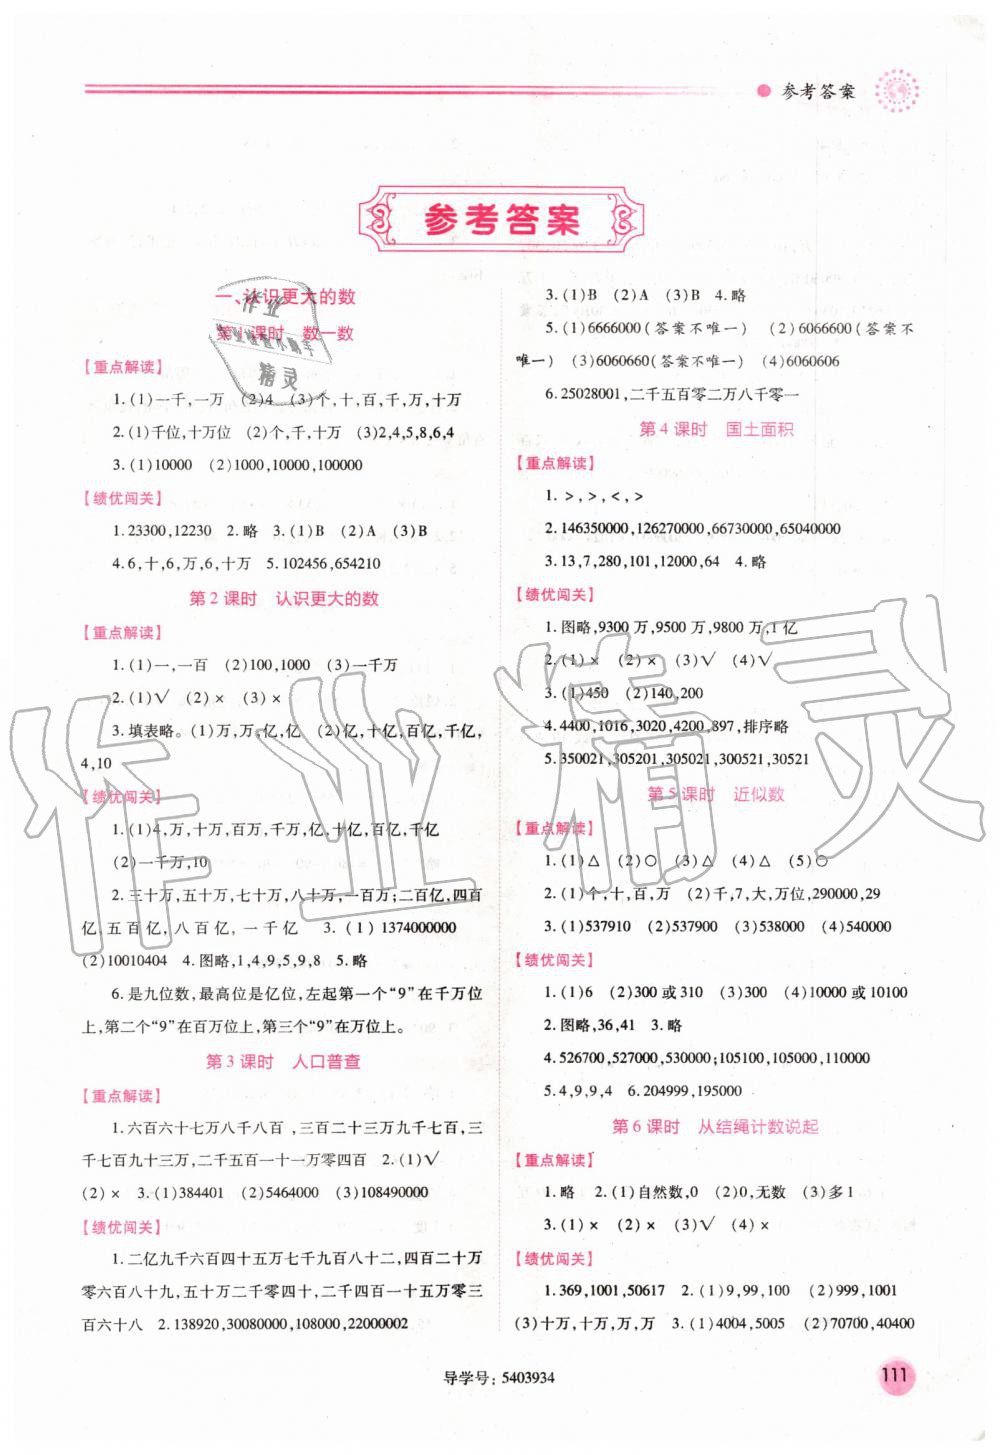 参考答案
参考答案
一、认识更大的数
第1课时 数一数
【重点解读】
1.(1)一千,一万 (2)4 (3)个,十,百,千,万,十万
2.(1)千位,十万位 (2)个,千,十万 (3)2,4,5,8,6,4
3.(1)10000 (2)1000,10000,100000
【绩优闯关】
1.23300,12230 2.略 3.(1)B (2)A (3)B
4.6,十,6,万,6,十万 5.102456,654210
第2课时 认识更大的数
【重点解读】
1.(1)一,一百 (2)100,1000 (3)一千万
2.(1)√ (2)× (3)×
3.填表略。(1)万,万,亿,亿 (2)亿,十亿,百亿,千亿,
4,10
【绩优闯关】
1.(1)4,万,十万,百万,千万,亿,十亿,百亿,千亿
(2)一千万,10
2.三十万,五十万,七十万,八十万,一百万;二百亿,四百
亿,五百亿,八百亿,一千亿 3.(1)1374000000
(2)10010404 4.图略,1,4,9,5,9,8 5.略
6.是九位数,最高位是亿位,左起第一个“9”在千万位
上,第二个“9”在百万位上,第三个“9”在万位上。
第3课时 人口普查
【重点解读】
1.六百六十七万八千八百,三百二十三万九千七百,三
千七百二十三万,二千五百一十一万零四百 2.(1)√
(2)× 3.(1)384401 (2)5464000 (3)108490000
【绩优闯关】
1.二亿九千六百四十五万七千九百八十二,四百二十万
零六百八十九,五十万二千零四十,二千四百一十五万零三
百六十八 2.138920,30080000,108000,22000002
3.(1)B (2)A (3)B 4.略
5.(1)6666000(答案不唯一) (2)6066600(答案不
唯一) (3)6060660(答案不唯一) (4)6060606
6.25028001,二千五百零二万八千零一
第4课时 国土面积
【重点解读】
1.>,>,<,>
2.146350000,126270000,66730000,65040000
3.13,7,280,101,12000,64 4.略
【绩优闯关】
1.图略,9300万,9500万,9800万,1亿
2.(1)× (2)× (3)√ (4)√
3.(1)450 (2)140,200
4.4400,1016,3020,4200,897,排序略
5.350021,305201,305021,300521,30521
第5课时 近似数
【重点解读】
1.(1)△ (2)○ (3)△ (4)△ (5)○
2.(1)个,十,百,万 (2)千,7,大,万位,290000,29
3.(1)537910 (2)537900 (3)538000 (4)540000
【绩优闯关】
1.(1)6 (2)300或310 (3)300 (4)10000或10100
2.图略,36,41 3.略
4.526700,527000,530000;105100,105000,110000
5.4,9,9,4 6.204999,195000
第6课时 从结绳计数说起
【重点解读】
1.略 2.(1)自然数,0 (2)0,无数 (3)多1
3.(1)× (2)× (3)√ (4)×
【绩优闯关】
1.369,1001,50617 2.(1)9,99,100 (2)999,1001
(3)十万,十万,万,万 3.(1)4004,5005 (2)70700,40400
导学号:5403934
111
作业精灵
作业
精灵